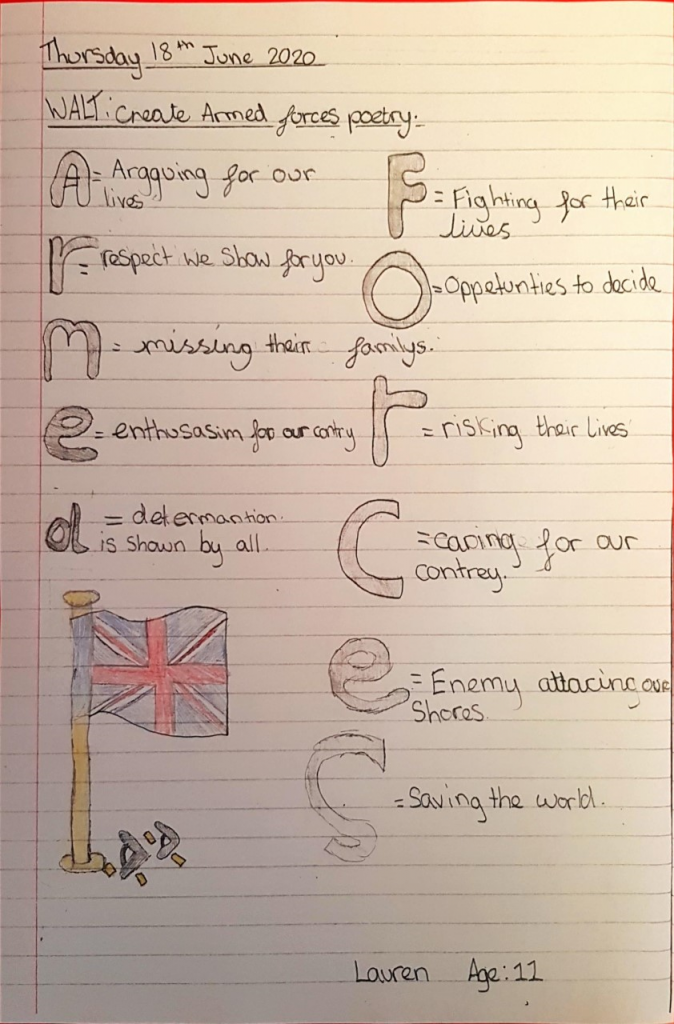 Thursday 18th June 2020
WALT: Create Armed forces poetry.
A = Argquing for our
lives
r = respect we show for you.
m = missing their familys.
e = enthusasim for our contry
d = determantion.
is shown by all.
F = Fighting for their
lives
O = Oppetunties to decide
r = risking their lives
C = caring for our
contrey.
e = Enemy attacing our
Shores.
S = Saving the world.
Lauren Age: 11